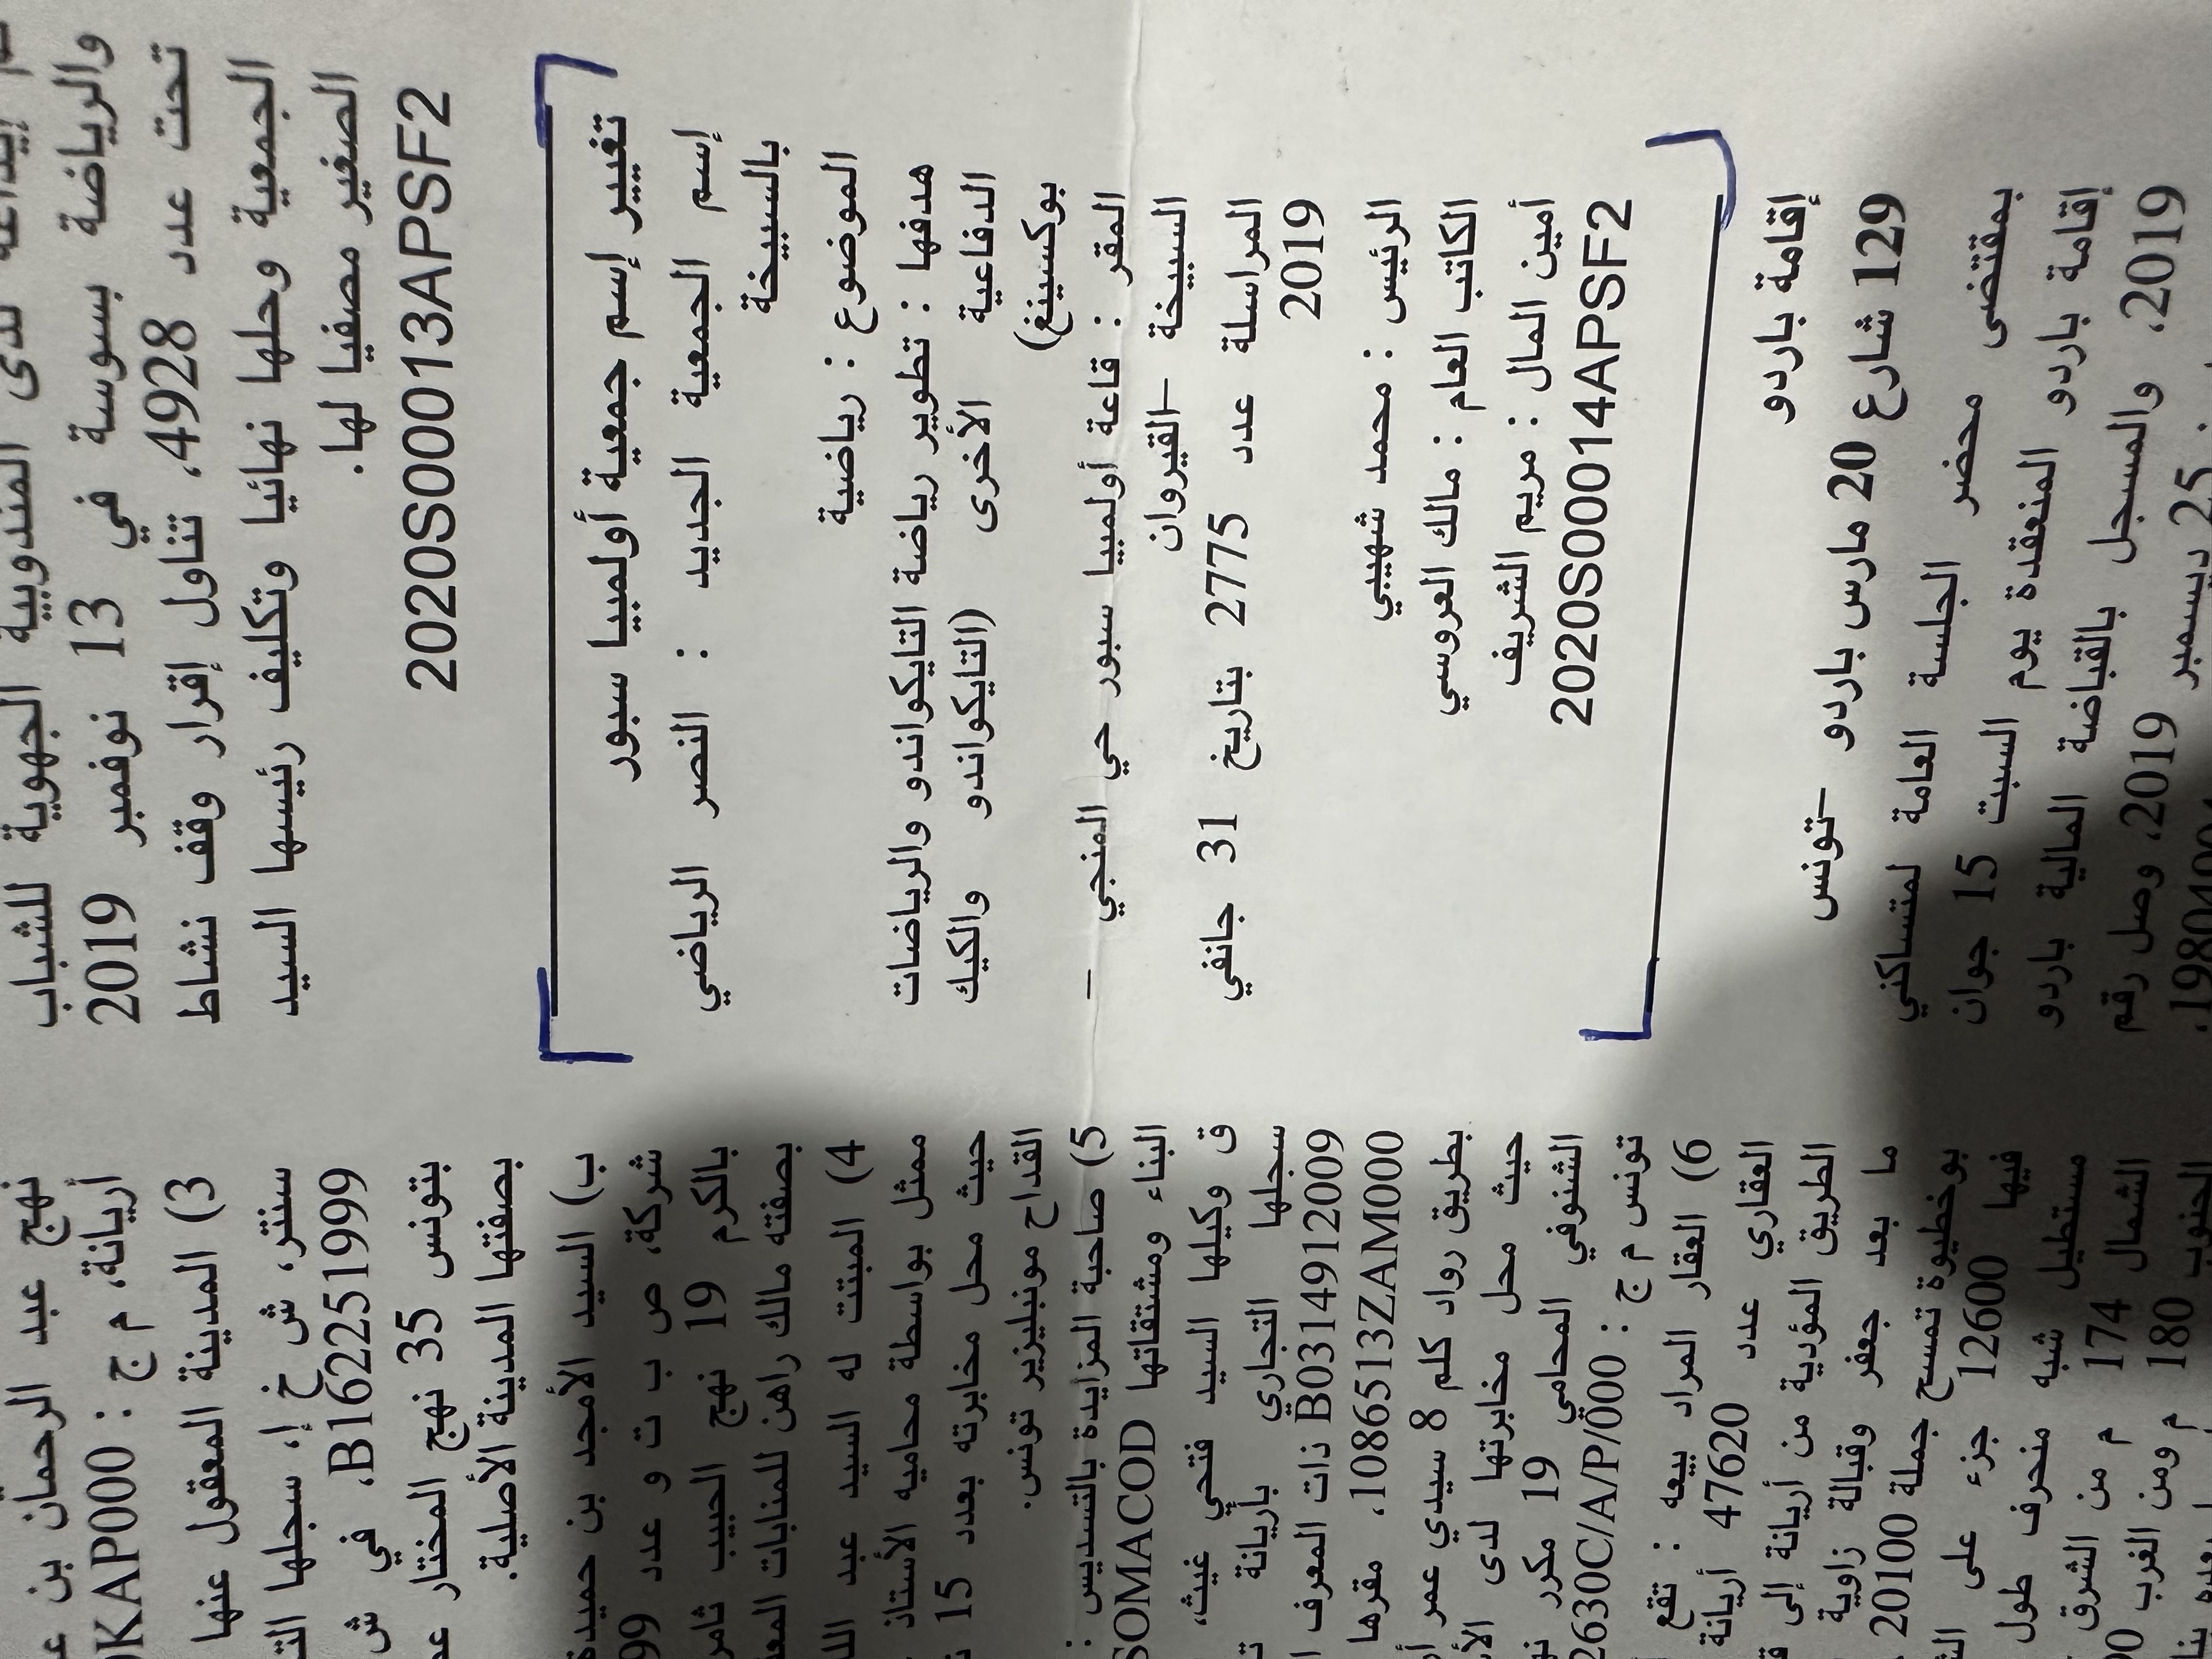 إيداعه لدى المندوبية الجهوية للشباب
والرياضة بسوسة في 13 نوفمبر 2019
تحت عدد 4928، تتناول إقرار وقف نشاط
الجمعية وحلها نهائيا وتكليف رئيسها السيد
الصغير مصفيا لها.
2020S00013APSF2
تغيير إسم جمعية أولمبيا سبور
إسم الجمعية الجديد : النصر الرياضي
بالسبيخة
الموضوع : رياضية
هدفها : تطوير رياضة التايكواندو والرياضات
الدفاعية الأخرى (التايكواندو والكيك
بوكسينغ)
المقر : قاعة أولمبيا سبور حي المنجي –
السبيخة –القيروان
المراسلة عدد 2775 بتاريخ 31 جانفي
2019
الرئيس : محمد شهيبي
الكاتب العام : مالك العروسي
أمين المال : مريم الشريف
2020S00014APSF2
إقامة باردو
129 شارع 20 مارس باردو –تونس
بمقتضى محضر الجلسة العامة لمتساكني
إقامة باردو المنعقدة يوم السبت 15 جوان
2019، والمسجل بالقباضة المالية باردو
25 ديسمبر 2019، وصل رقم
نهج عبد الرحمان بن
أريانة، م ج : KAP000
3) المدينة المعقول عنها
سنتر، ش خ إ، سجلها
B162251999، في ش
بتونس 35 نهج المختار
بصفتها المدينة الأصلية.
ب) السيد الأمجد بن حميدة
شركة، ص ب ت و عدد 99
بالكرم 19 نهج الحبيب ثامر
بصفته مالك راهن للمنابات
4) المبتت له السيد عبد
ممثل بواسطة محاميه الأستاذ
حيث محل مخابرته بعدد 15
القداح مونبليزير تونس.
5) صاحبة المزايدة بالتسديس :
البناء ومشتقاتها SOMACOD
ق وكيلها السيد فتحي غيث،
سجلها التجاري بأريانة
B0314912009 ذات المعرف
1086513ZAM000، مقرها
بطريق رواد كلم 8 سيدي عمر
حيث محل مخابرتها لدى
الشنوفي المحامي 19 مكرر
تونس م ج : 2630C/A/P/000
6) العقار المراد بيعه : تقع
العقاري عدد 47620 أريانة
الطريق المؤدية من أريانة إلى
ما بعد جعفر وقبالة زاوية
بوخطيوة تمسح جملة 20100
فيها 12600 جزء على
مستطيل شبه منحرف طول
الشمال 174 م من الشرق
الجنوب 180 م ومن الغرب